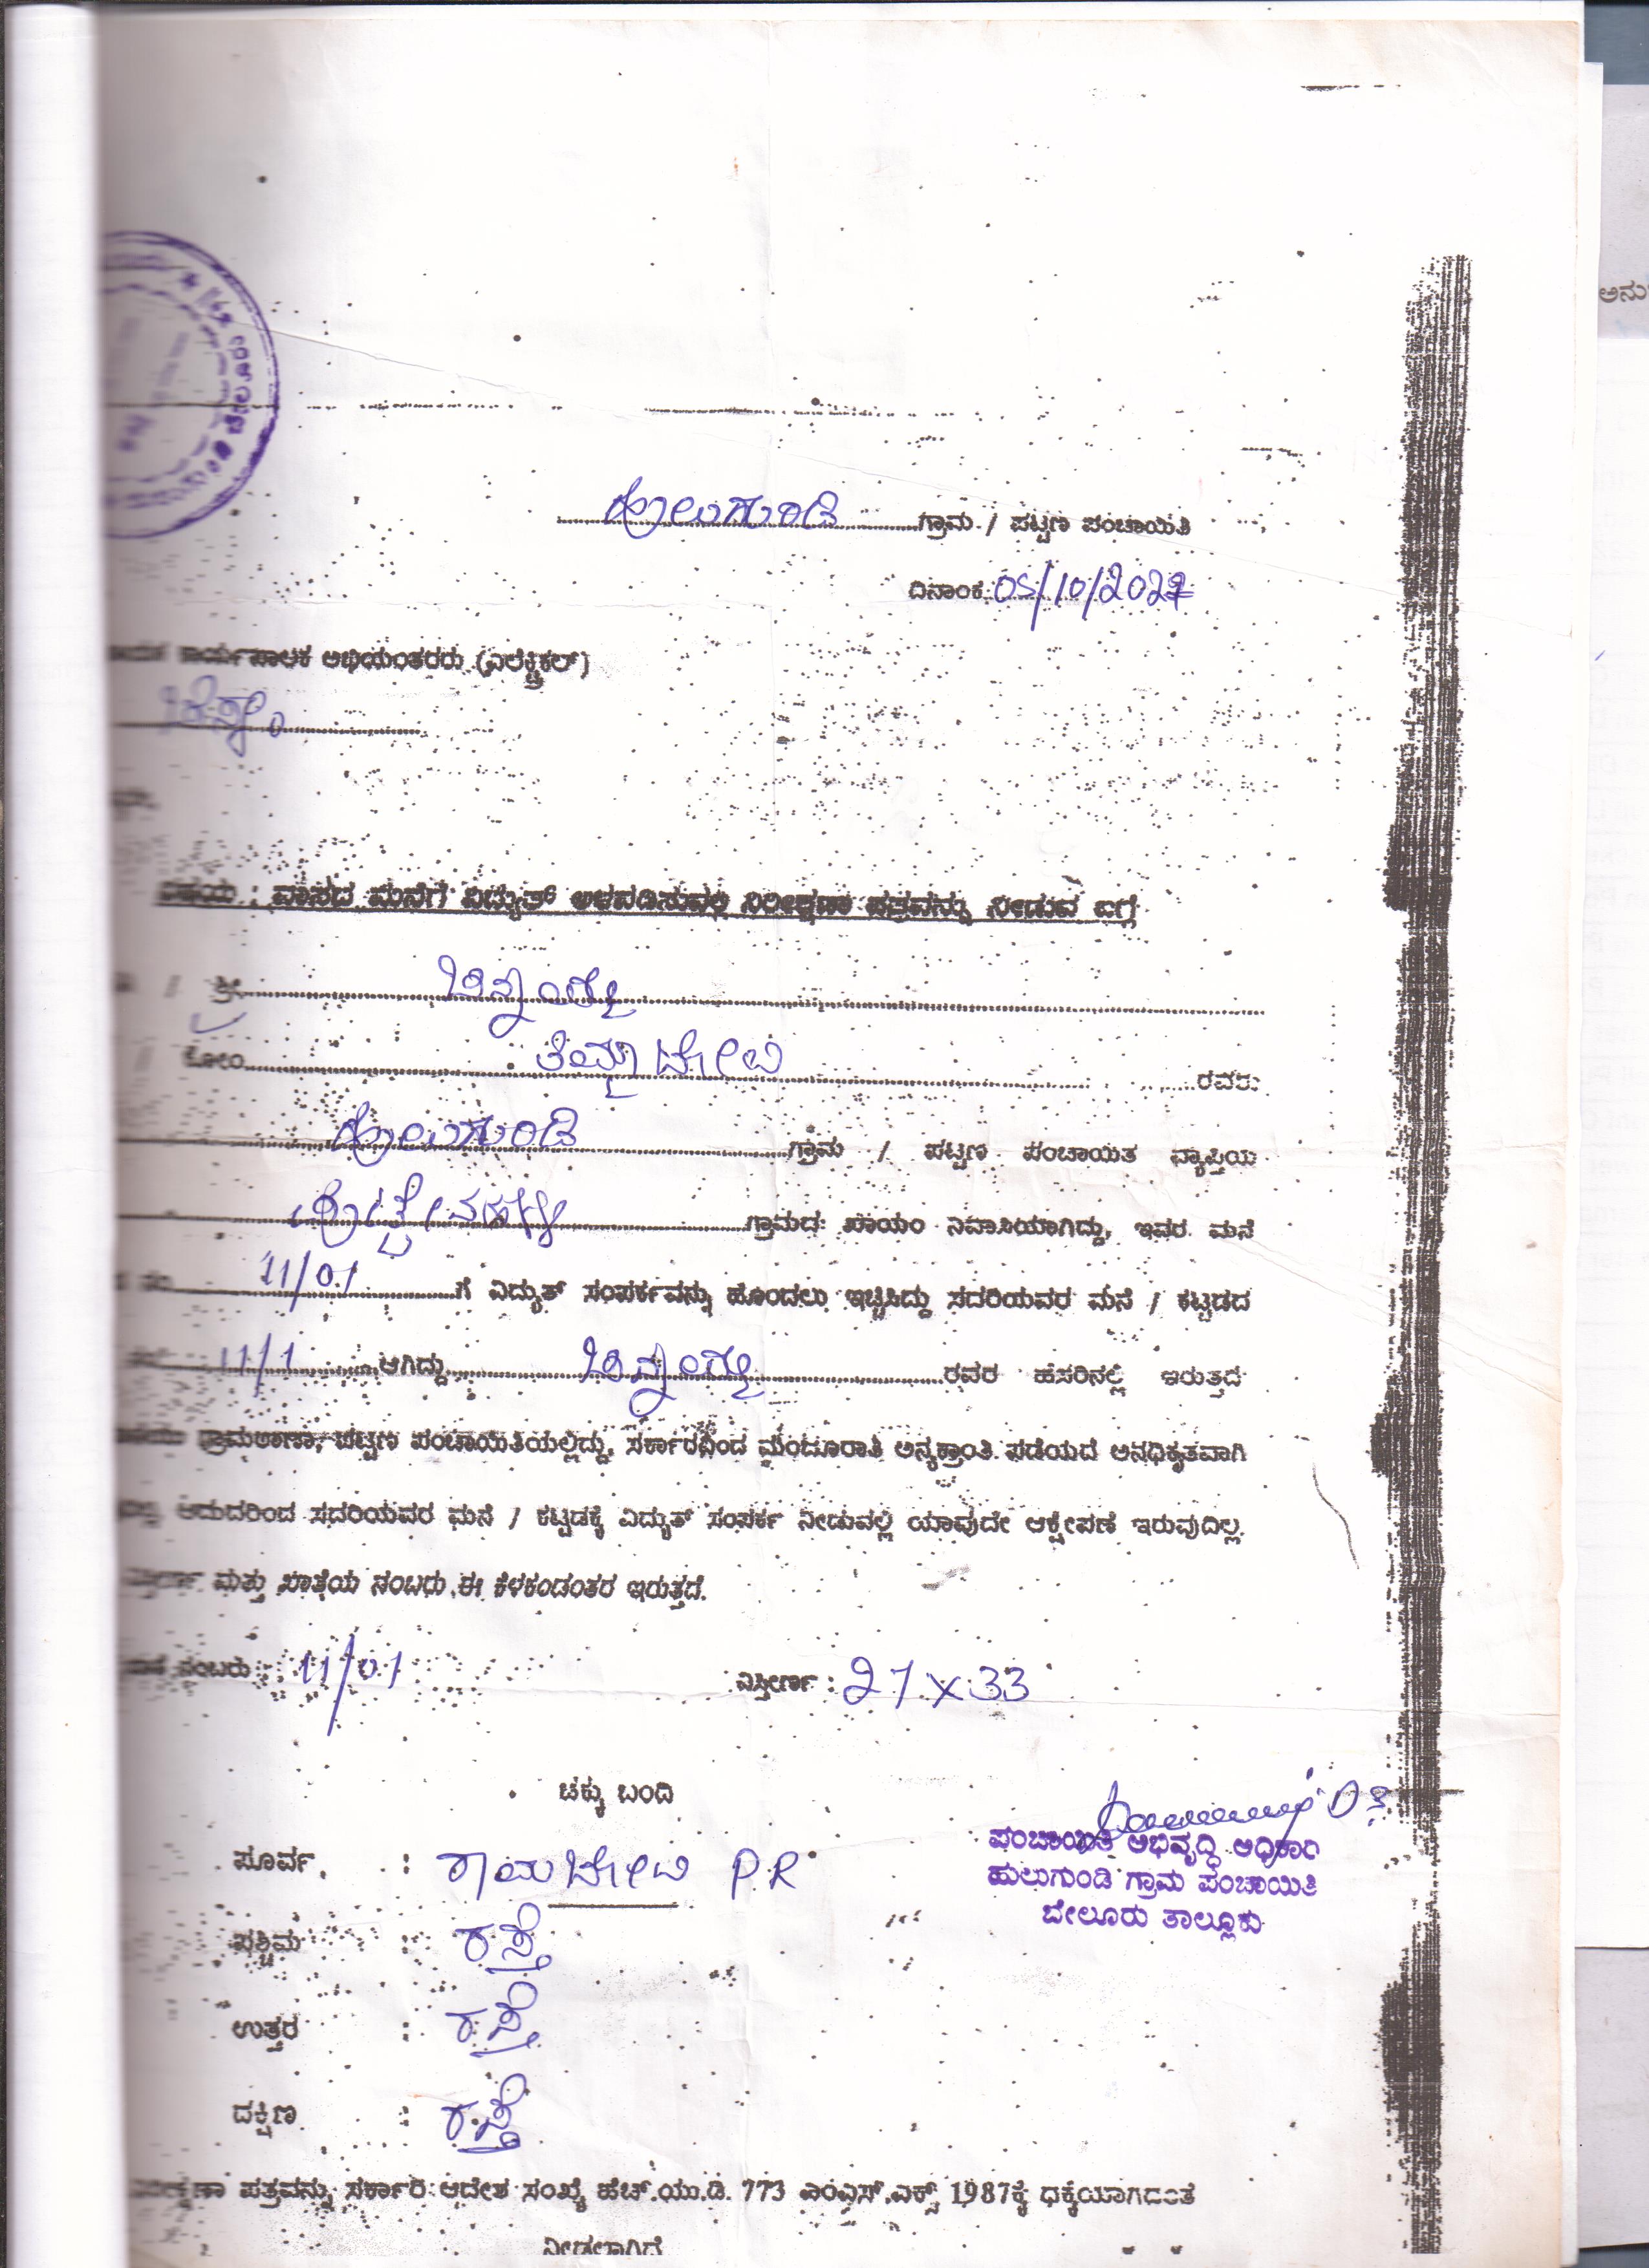 ಹುಲುಗುಂಡಿ ಗ್ರಾಮ / ಪಟ್ಟಣ ಪಂಚಾಯಿತಿ
ದಿನಾಂಕ: 05/10/202
ಕಾರ್ಯಪಾಲಕ ಅಭಿಯಂತರರು (ಎಲೆಕ್ಟ್ರಿಕಲ್)
ವಿಷಯ : ವಾಸದ ಮನೆಗೆ ವಿದ್ಯುತ್ ಅಳವಡಿಸುವಲ್ಲಿ ನಿರೀಕ್ಷಣಾ ಪತ್ರವನ್ನು ನೀಡುವ ಬಗ್ಗೆ
ಶ್ರೀ
ಕೋಂ ರವರು
ಹುಲುಗುಂಡಿ ಗ್ರಾಮ / ಪಟ್ಟಣ ಪಂಚಾಯಿತ ವ್ಯಾಪ್ತಿಯ
ಗ್ರಾಮದ ಖಾಯಂ ನಿವಾಸಿಯಾಗಿದ್ದು, ಇವರ ಮನೆ
ನಂ 11/01 ಗೆ ವಿದ್ಯುತ್ ಸಂಪರ್ಕವನ್ನು ಹೊಂದಲು ಇಚ್ಚಿಸಿದ್ದು ಸದರಿಯವರ ಮನೆ / ಕಟ್ಟಡದ
11/1 ಆಗಿದ್ದು ರವರ ಹೆಸರಿನಲ್ಲಿ ಇರುತ್ತದೆ
ಗ್ರಾಮಠಾಣಾ, ಪಟ್ಟಣ ಪಂಚಾಯಿತಿಯಲ್ಲಿದ್ದು, ಸರ್ಕಾರದಿಂದ ಮಂಜೂರಾತಿ ಅನ್ಯಕ್ರಾಂತಿ ಪಡೆಯದೆ ಅನಧಿಕೃತವಾಗಿ
ಆದುದರಿಂದ ಸದರಿಯವರ ಮನೆ / ಕಟ್ಟಡಕ್ಕೆ ವಿದ್ಯುತ್ ಸಂಪರ್ಕ ನೀಡುವಲ್ಲಿ ಯಾವುದೇ ಆಕ್ಷೇಪಣೆ ಇರುವುದಿಲ್ಲ.
ಮತ್ತು ಖಾತೆಯ ನಂಬರು ಈ ಕೆಳಕಂಡಂತರ ಇರುತ್ತದೆ.
ನಂಬರು : 11/01 ವಿಸ್ತೀರ್ಣ : 21 x 33
ಚಕ್ಕು ಬಂದಿ
ಪಂಚಾಯಿತಿ ಅಭಿವೃದ್ಧಿ ಅಧಿಕಾರಿ
ಪೂರ್ವ : ರಾಮಬೋವಿ P.R
ಹುಲುಗುಂಡಿ ಗ್ರಾಮ ಪಂಚಾಯಿತಿ
ಬೇಲೂರು ತಾಲ್ಲೂಕು
ಪಶ್ಚಿಮ : ರಸ್ತೆ
ಉತ್ತರ : ರಸ್ತೆ
ದಕ್ಷಿಣ : ರಸ್ತೆ
ಪತ್ರವನ್ನು ಸರ್ಕಾರಿ ಆದೇಶ ಸಂಖ್ಯೆ ಹೆಚ್.ಯು.ಡಿ. 773 ಎಂಎಸ್.ಎಕ್ಸ್ 1987ಕ್ಕೆ ಧಕ್ಕೆಯಾಗದಂತೆ
ನೀಡಲಾಗಿದೆ